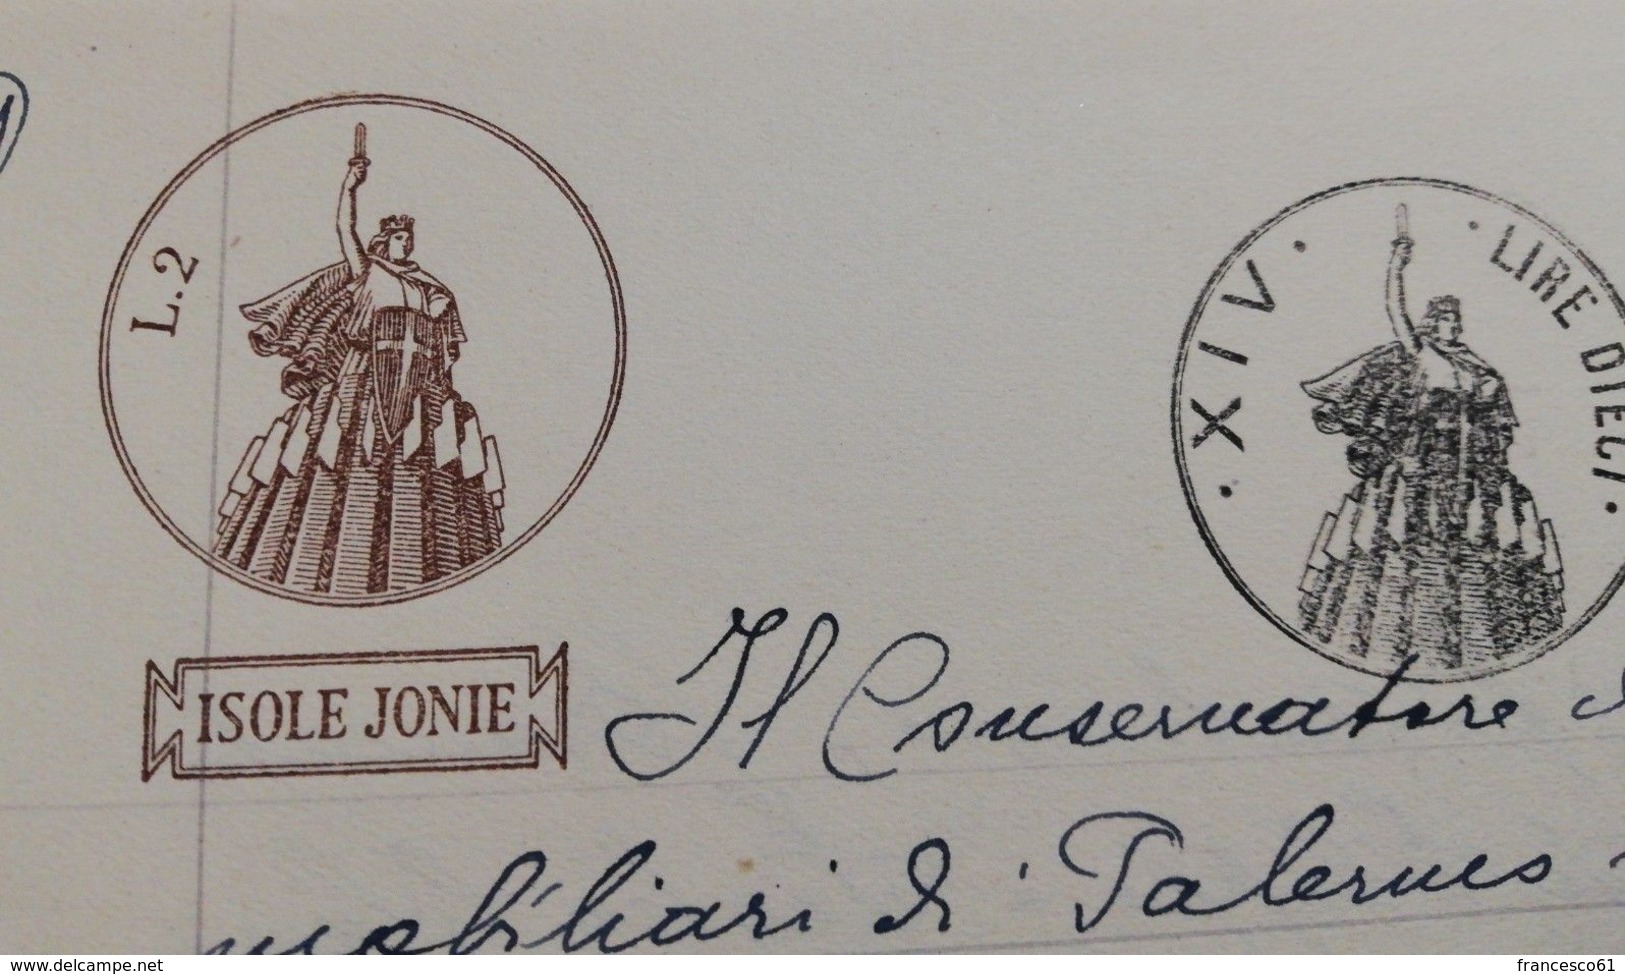 L.2
· XIV ·
· LIRE DIECI ·
ISOLE JONIE
Il Conservatore
mobiliari di Palermo
www.delcampe.net
francesco61